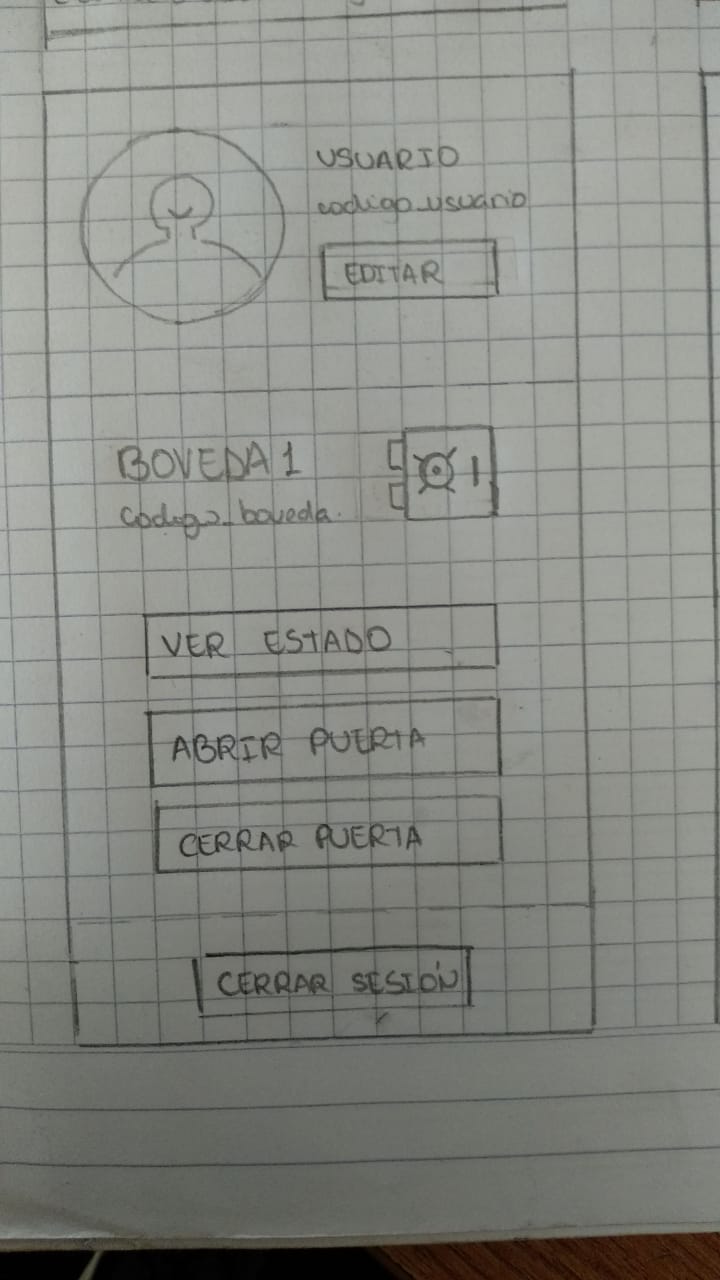 USUARIO
codigo_usuario
EDITAR
BOVEDA 1
codigo_boveda.
VER ESTADO
ABRIR PUERTA
CERRAR PUERTA
CERRAR SESIÓN